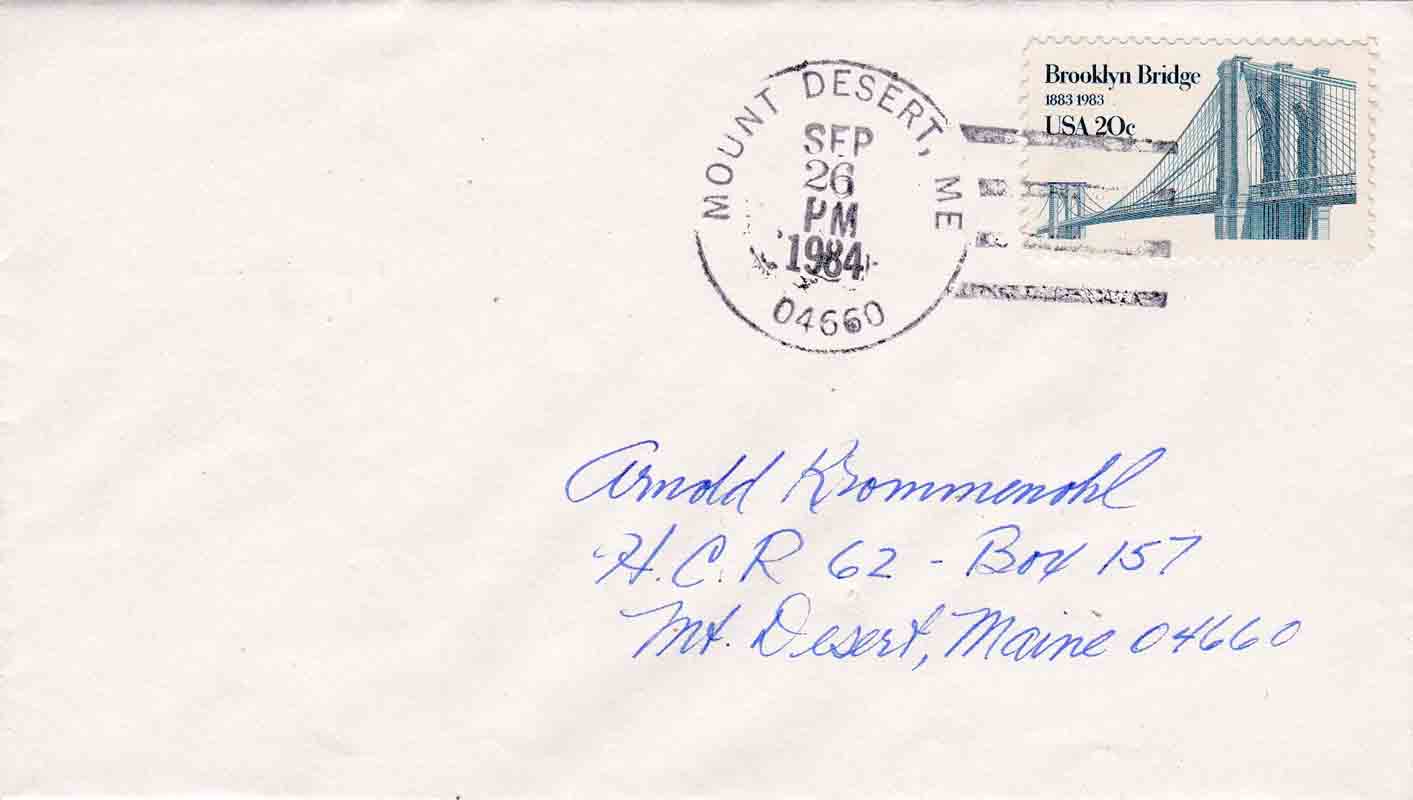 MOUNT DESERT, ME
SEP
26
PM
1984
04660
Brooklyn Bridge
1883 1983
USA 20c
Arnold Krommenohl
H.C.R 62 - Box 157
Mt. Desert, Maine 04660